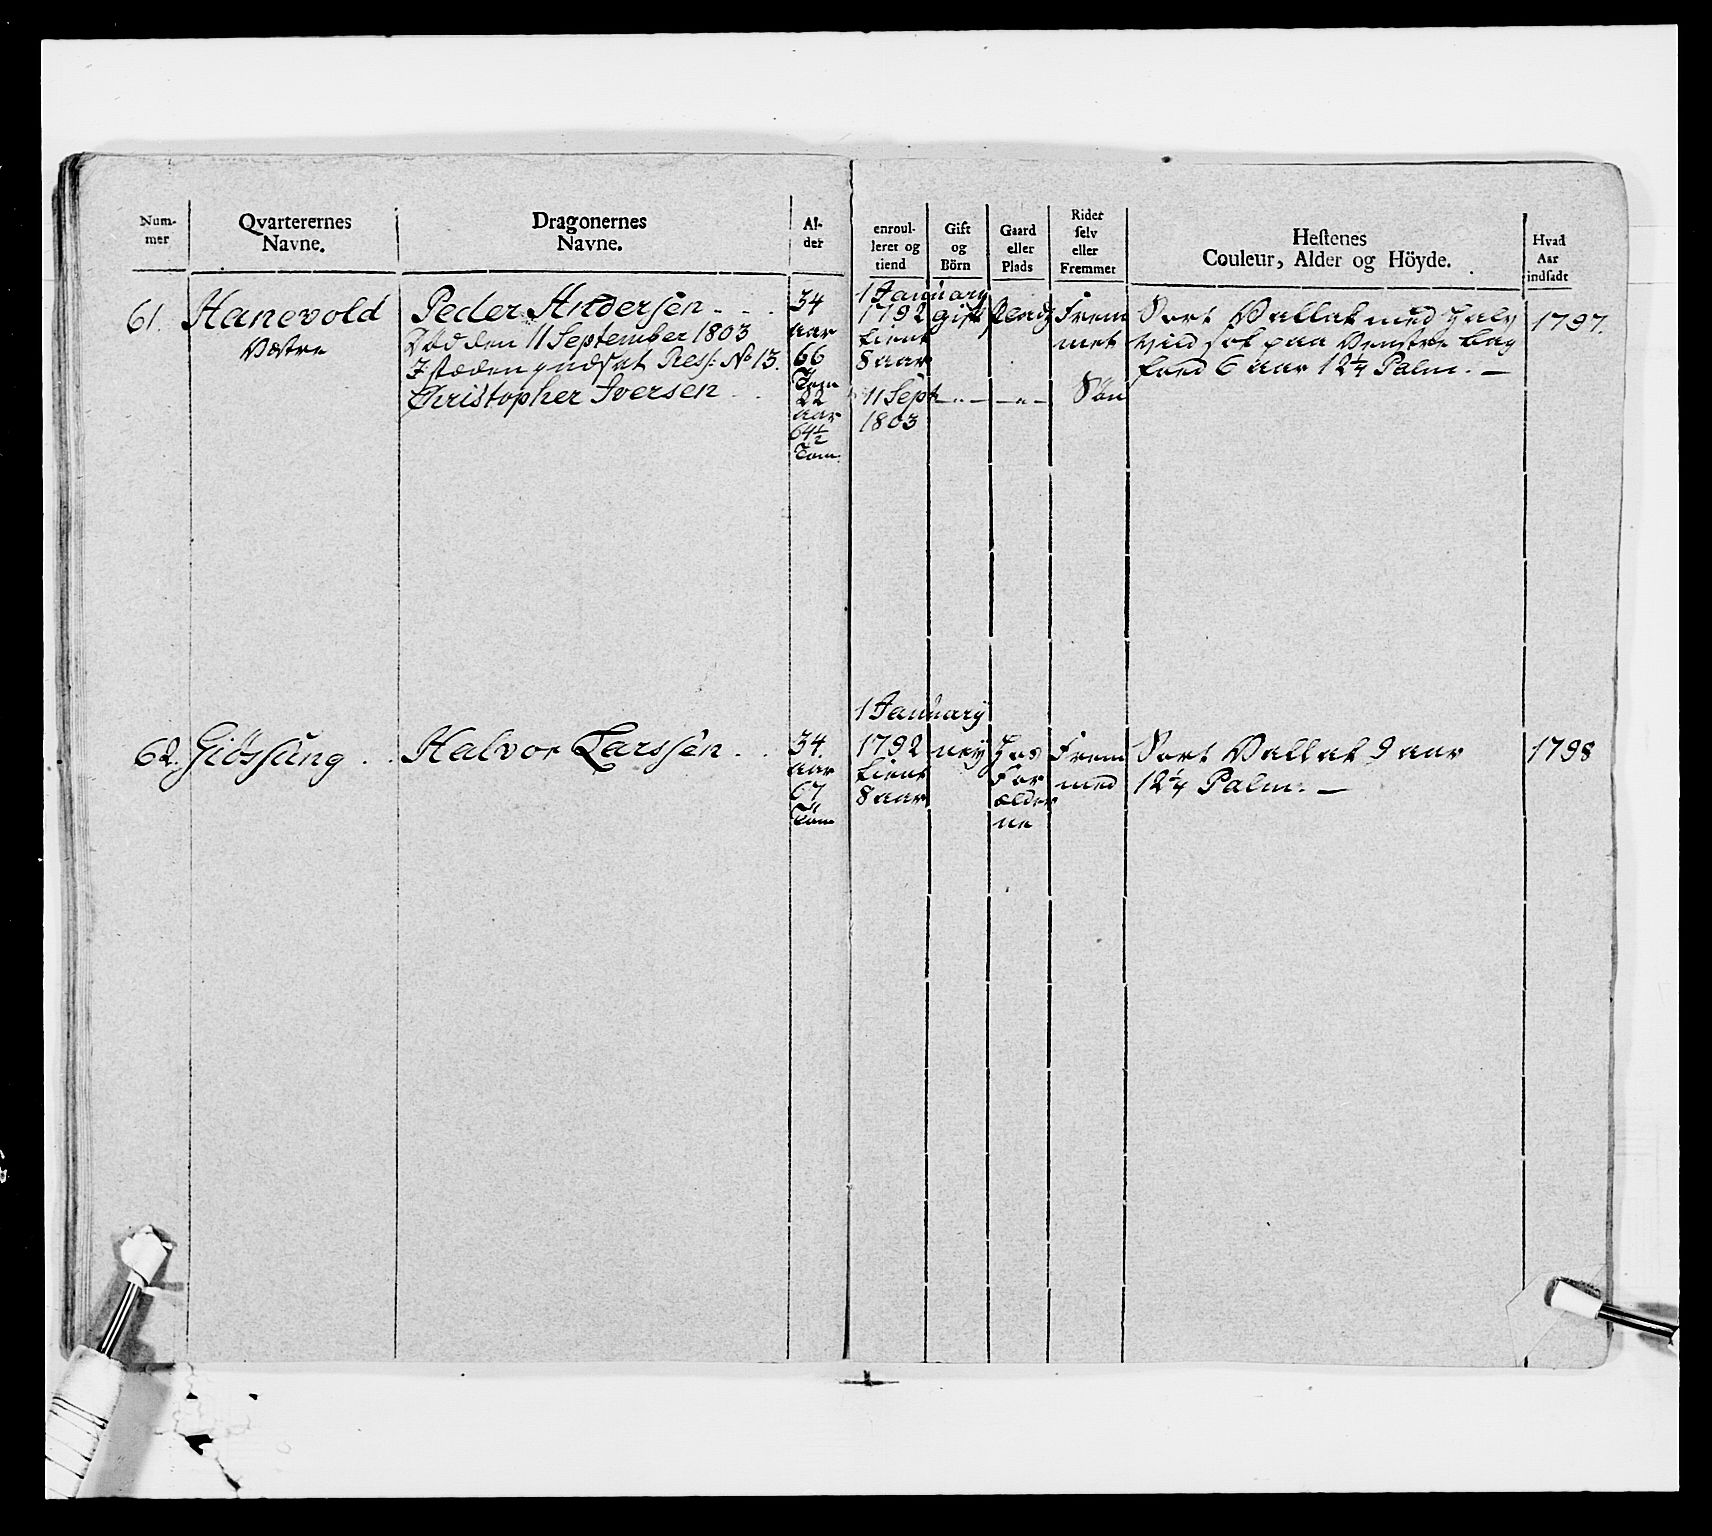 Num-
mer
Qvarterernes
Navne.
Dragonernes
Navne.
Al-
der
enroul-
leret og
tient
Gift
og
Börn
Gaard
eller
Plads
Rider
selv
eller
Fremmet
Hestenes
Couleur, Alder og Höyde.
Hvad
Aar
indsadt
61. Hanevold
Væstre
Peder Andersen
Död den 11 September 1803
I stæden indsat Res: No 13.
Christopher Iversen
34
aar
66
Tom
22
aar
64½
Tom.
1 January
1792
tient
8 aar
11 Sept
1803
gift
—"—
Plads
—"—
Frem
met
Sön
Sort Vallak med halv
hvid sok paa Venstre bag
foed 6 aar 12¼ Palm. —
1797.
62. Giössung
Halvor Larssen
34.
aar
67
Tom
1 January
1792
tient
8 aar
ney
hos
For
ælder
ne
Frem
med
Sort Vallak 9 aar
12¼ Palm: —
1798